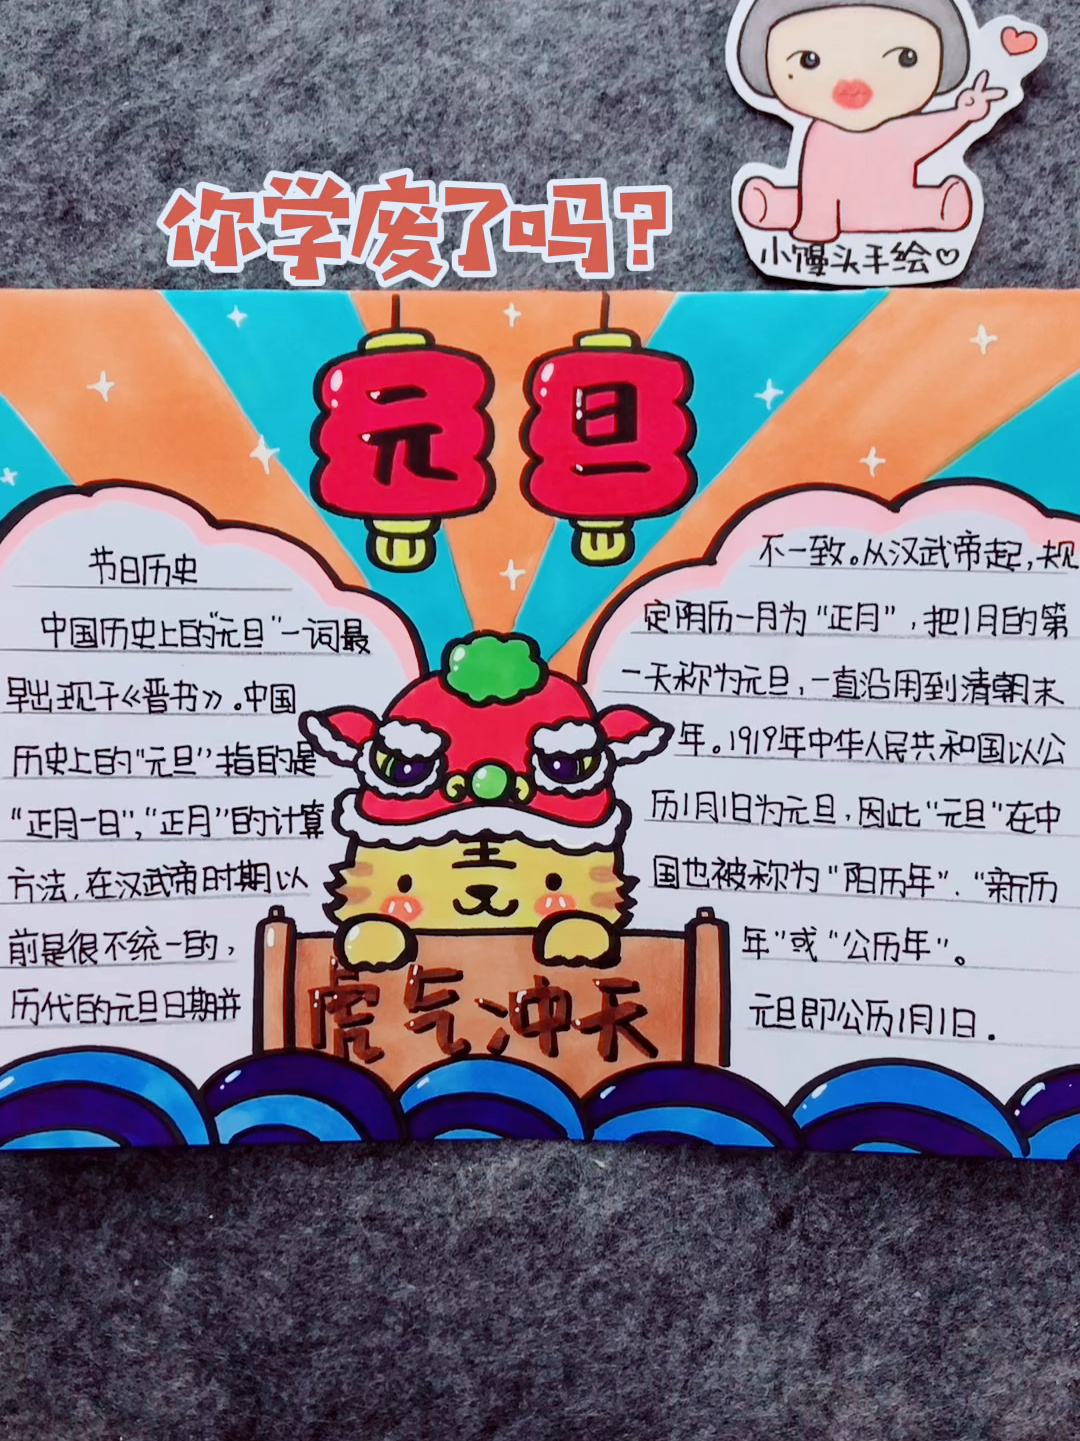 小馒头手绘♡
你学废了吗?
元旦
节日历史
中国历史上的“元旦”一词最
早出现于《晋书》。中国
历史上的“元旦”指的是
“正月一日”,“正月”的计算
方法,在汉武帝时期以
前是很不统一的,
历代的元旦日期并
不一致。从汉武帝起,规
定阴历一月为“正月”,把1月的第
一天称为元旦,一直沿用到清朝末
年。1919年中华人民共和国以公
历1月1日为元旦,因此“元旦”在中
国也被称为“阳历年”.“新历
年”或“公历年”。
元旦即公历1月1日.
王
虎气冲天